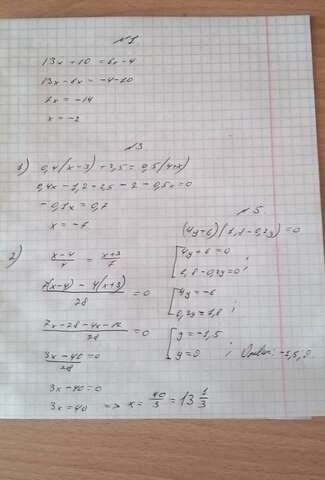 N1
13x + 10 = 6x - 4
13x - 6x = -4 - 10
7x = -14
x = -2
N3
1) 0,4(x-3) + 2,5 = 0,5(4+x)
0,4x - 1,2 + 2,5 - 2 - 0,5x = 0
-0,1x = 0,7
x = -7
2) x-4/4 = x+3/7
7(x-4) - 4(x+3)/28 = 0
7x - 28 - 4x - 12/28 = 0
3x - 40/28 = 0
3x - 40 = 0
3x = 40 => x = 40/3 = 13 1/3
N5
(4y+6)(1,8-0,2y) = 0
[4y+6 = 0
1,8-0,2y = 0 ;
[4y = -6
0,2y = 1,8 ;
[y = -1,5
y = 9 ; Ответ: -1,5, 9.